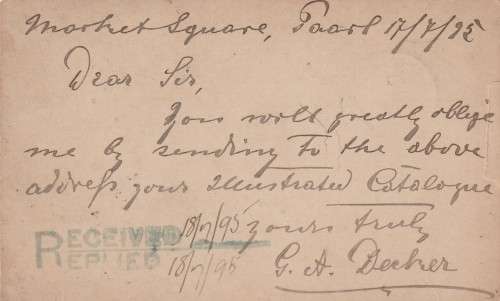 Market Square, Paarl 17/7/95
Dear Sir,
You will greatly oblige
me by sending to the above
address your Illustrated Catalogue
yours truly
G. A. Decker
RECEIVED 18/7/95
REPLIED 18/7/95